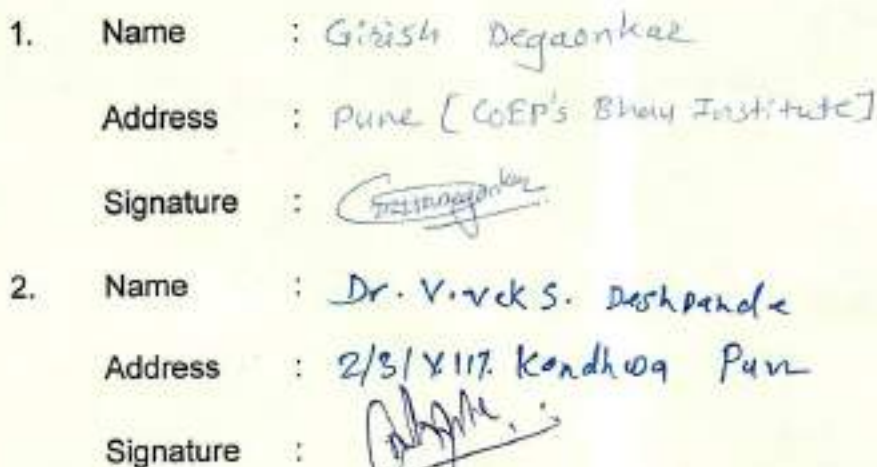 1. Name : Girish Degaonkar
Address : Pune [COEP's Bhau Institute]
Signature :
2. Name : Dr. Vivek S. Deshpande
Address : 2/3/ Kondhwa Pune
Signature :